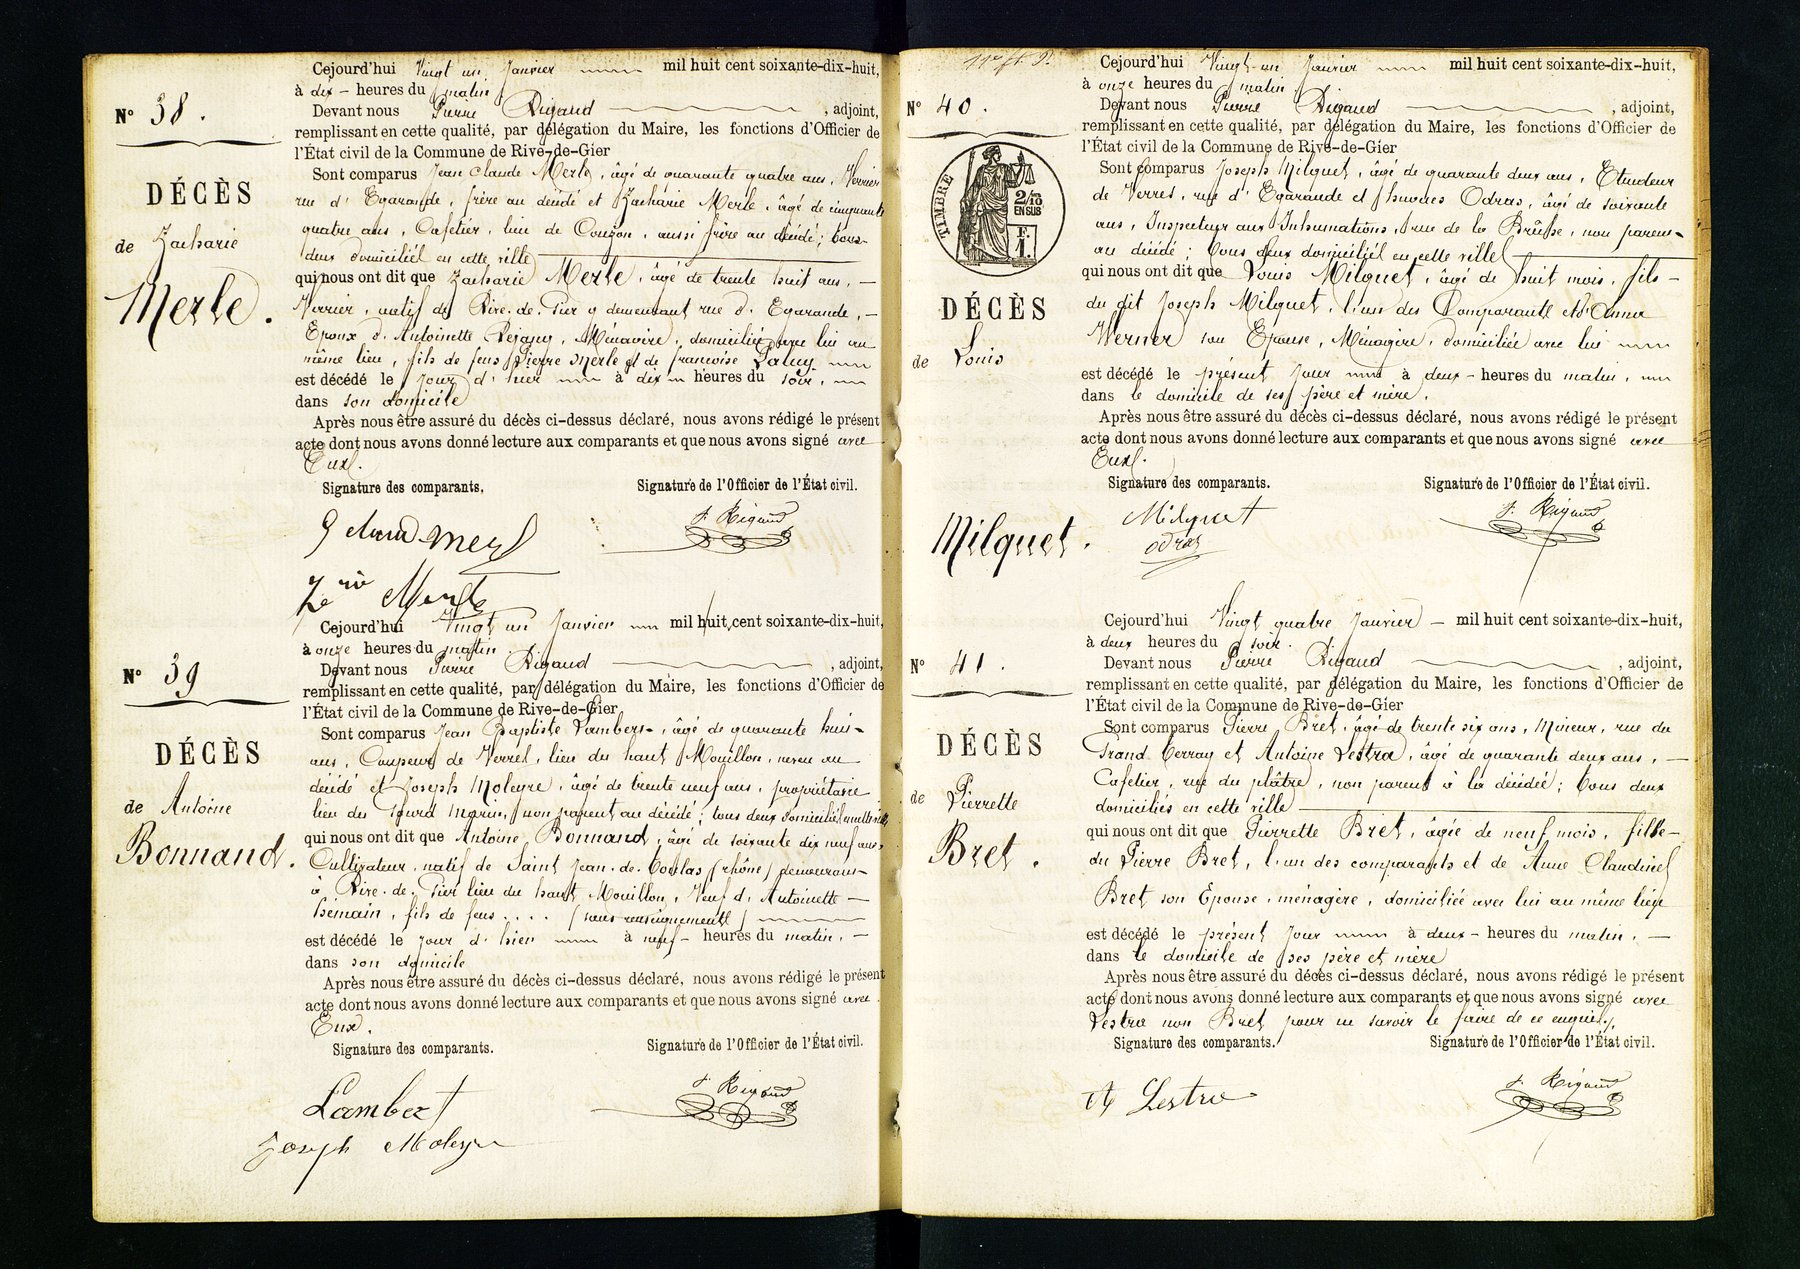 Cejourd'hui Vingt un Janvier mil huit cent soixante-dix-huit,
à dix - heures du matin
Devant nous Pierre Rigaud , adjoint,
N° 38.
remplissant en cette qualité, par délégation du Maire, les fonctions d'Officier de
l'État civil de la Commune de Rive-de-Gier
Sont comparus Jean Claude Merle, âgé de quarante quatre ans, Verrier
DÉCÈS
rue d'Egarande, frère au décédé et Zacharie Merle, âgé de cinquante
quatre ans, Cafetier, lieu de Couzon, aussi frère au décédé; tous
de Zacharie
deux domiciliés en cette ville
qui nous ont dit que Zacharie Merle, âgé de trente huit ans, -
Merle.
Verrier, natif de Rive-de-Gier y demeurant rue d'Egarande, -
Epoux d'Antoinette, Ménagère, domiciliée avec lui au
même lieu, fils de feus Pierre Merle et de françoise
est décédé le jour d'hier à dix heures du soir,
dans son domicile
Après nous être assuré du décès ci-dessus déclaré, nous avons rédigé le présent
acte dont nous avons donné lecture aux comparants et que nous avons signé avec
Eux.
Signature des comparants. Signature de l'Officier de l'État civil.
Merle P. Rigaud
Merle
Cejourd'hui Vingt un Janvier mil huit cent soixante-dix-huit,
à onze heures du matin.
Devant nous Pierre Rigaud , adjoint,
N° 39
remplissant en cette qualité, par délégation du Maire, les fonctions d'Officier de
l'État civil de la Commune de Rive-de-Gier
Sont comparus Jean Baptiste Lambert, âgé de quarante huit
DÉCÈS
ans, Coupeur de Verres, lieu du haut Mouillon, neveu au
décédé et Joseph Moleyre, âgé de trente neuf ans, propriétaire
de Antoine
lieu du Gourd Marin, non parent au décédé; tous deux domiciliés en cette ville
qui nous ont dit que Antoine Bonnand, âgé de soixante dix neuf ans,
Bonnand.
Cultivateur, natif de Saint Jean-de-Toulas (rhône) demeurant
à Rive-de-Gier lieu du haut Mouillon, Veuf d'Antoinette -
Hémain, fils de feus .... (sans renseignements)
est décédé le jour d'hier à neuf - heures du matin, -
dans son domicile
Après nous être assuré du décès ci-dessus déclaré, nous avons rédigé le présent
acte dont nous avons donné lecture aux comparants et que nous avons signé avec
Eux.
Signature des comparants. Signature de l'Officier de l'État civil.
Lambert P. Rigaud
Joseph Moleyre
Cejourd'hui Vingt-un Janvier mil huit cent soixante-dix-huit,
à onze heures du matin
Devant nous Pierre Rigaud , adjoint,
N° 40.
remplissant en cette qualité, par délégation du Maire, les fonctions d'Officier de
l'État civil de la Commune de Rive-de-Gier
Sont comparus Joseph Milquet, âgé de quarante deux ans, Etendeur
TIMBRE
2/10
EN SUS
F.
1.
de Verres, rue d'Egarande et Odras, âgé de soixante
ans, Inspecteur aux Inhumations, rue de la, non parent
au décédé; tous deux domiciliés en cette ville
qui nous ont dit que Louis Milquet, âgé de huit mois, fils -
DÉCÈS
du dit Joseph Milquet, l'un des Comparants et d'Anna
Werner son Epouse, Ménagère, domiciliée avec lui
de Louis
est décédé le présent jour à deux - heures du matin,
dans le domicile de ses père et mère.
Après nous être assuré du décès ci-dessus déclaré, nous avons rédigé le présent
acte dont nous avons donné lecture aux comparants et que nous avons signé avec
Eux.
Signature des comparants. Signature de l'Officier de l'État civil.
Milquet.
Milquet P. Rigaud
Odras
Cejourd'hui Vingt quatre Janvier - mil huit cent soixante-dix-huit,
à deux heures du soir.
Devant nous Pierre Rigaud , adjoint,
N° 41.
remplissant en cette qualité, par délégation du Maire, les fonctions d'Officier de
l'État civil de la Commune de Rive-de-Gier
Sont comparus Pierre Bret, âgé de trente six ans, Mineur, rue du
DÉCÈS
Grand terray et Antoine Lestra, âgé de quarante deux ans, -
Cafetier, rue du plâtre, non parent à la décédée; tous deux
de Pierrette
domiciliés en cette ville
qui nous ont dit que Pierrette Bret, âgée de neuf mois, fille -
Bret.
du Pierre Bret, l'un des comparants et de Anne Claudine
Bret son Epouse, ménagère, domiciliée avec lui au même lieu
est décédé le présent jour à deux - heures du matin, -
dans le domicile de ses père et mère
Après nous être assuré du décès ci-dessus déclaré, nous avons rédigé le présent
acte dont nous avons donné lecture aux comparants et que nous avons signé avec
Lestra non Bret pour ne savoir le faire de ce enquis.
Signature des comparants. Signature de l'Officier de l'État civil.
A Lestra P. Rigaud